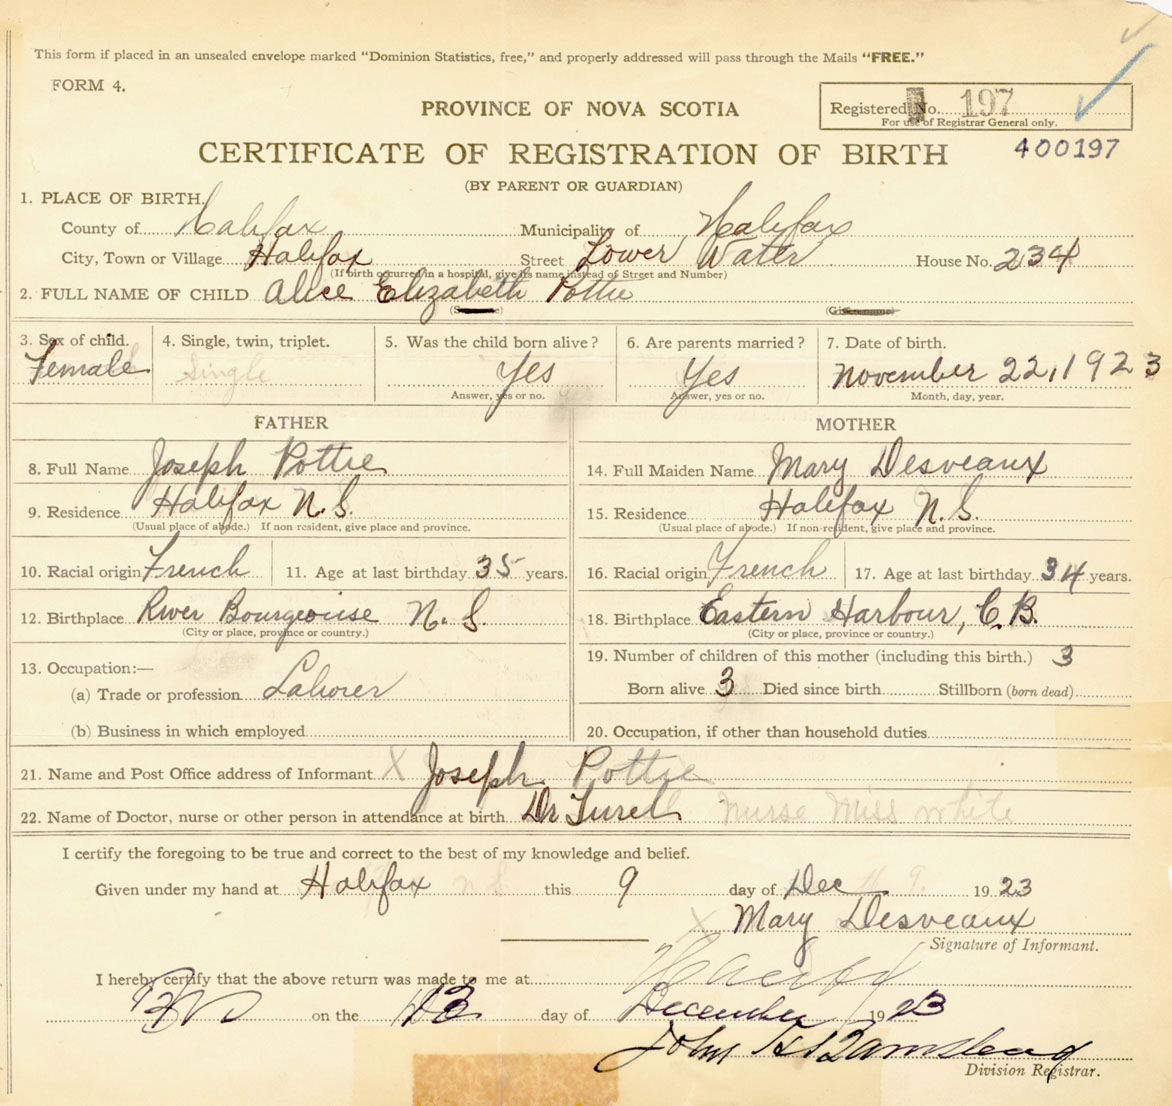 This form if placed in an unsealed envelope marked “Dominion Statistics, free,” and properly addressed will pass through the Mails “FREE.”
FORM 4.
PROVINCE OF NOVA SCOTIA
Registered No. 197
For use of Registrar General only.
CERTIFICATE OF REGISTRATION OF BIRTH
400197
(BY PARENT OR GUARDIAN)
1. PLACE OF BIRTH.
County of Halifax Municipality of Halifax
City, Town or Village Halifax Street Lower Water House No. 234
(If birth occurred in a hospital, give its name instead of Street and Number)
2. FULL NAME OF CHILD Alice Elizabeth Pottie
3. Sex of child. 4. Single, twin, triplet. 5. Was the child born alive? 6. Are parents married? 7. Date of birth.
Female Single Yes Yes November 22, 1923
Answer, yes or no. Answer, yes or no. Month, day, year.
FATHER MOTHER
8. Full Name Joseph Pottie 14. Full Maiden Name Mary Desveaux
9. Residence Halifax N.S. 15. Residence Halifax N.S.
(Usual place of abode.) If non-resident, give place and province. (Usual place of abode.) If non-resident, give place and province.
10. Racial origin French 11. Age at last birthday 35 years. 16. Racial origin French 17. Age at last birthday 34 years.
12. Birthplace River Bourgeoise N.S. 18. Birthplace Eastern Harbour, C.B.
(City or place, province or country.) (City or place, province or country.)
13. Occupation:— 19. Number of children of this mother (including this birth.) 3
(a) Trade or profession Laborer Born alive 3 Died since birth Stillborn (born dead)
(b) Business in which employed 20. Occupation, if other than household duties
21. Name and Post Office address of Informant X Joseph Pottie
22. Name of Doctor, nurse or other person in attendance at birth Dr Turel Nurse Miss White
I certify the foregoing to be true and correct to the best of my knowledge and belief.
Given under my hand at Halifax N S this 9 day of Dec 1923
X Mary Desveaux
Signature of Informant.
I hereby certify that the above return was made to me at
on the 13 day of December 1923
John
Division Registrar.